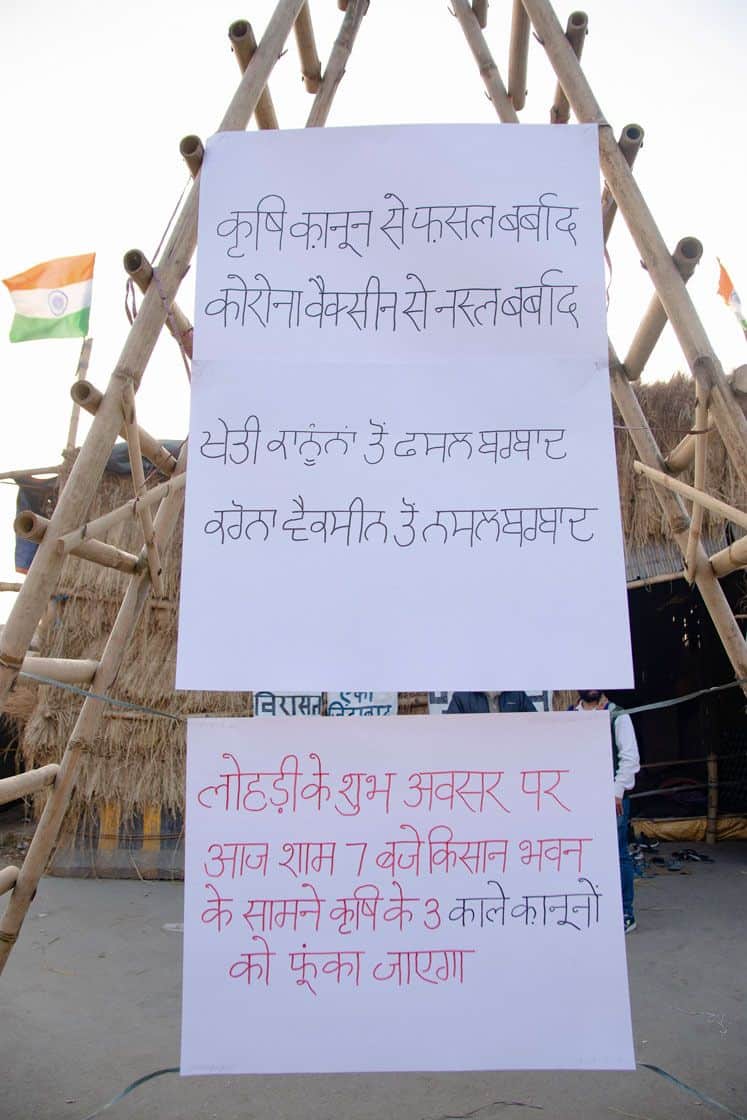 कृषि क़ानून से फ़सल बर्बाद
कोरोना वैक्सीन से नस्ल बर्बाद
ਖੇਤੀ ਕਾਨੂੰਨਾਂ ਤੋਂ ਫਸਲ ਬਰਬਾਦ
ਕਰੋਨਾ ਵੈਕਸੀਨ ਤੋਂ ਨਸਲ ਬਰਬਾਦ
विरासत
एकता
जिंदाबाद
लोहड़ी के शुभ अवसर पर
आज शाम 7 बजे किसान भवन
के सामने कृषि के 3 काले क़ानूनों
को फूंका जाएगा